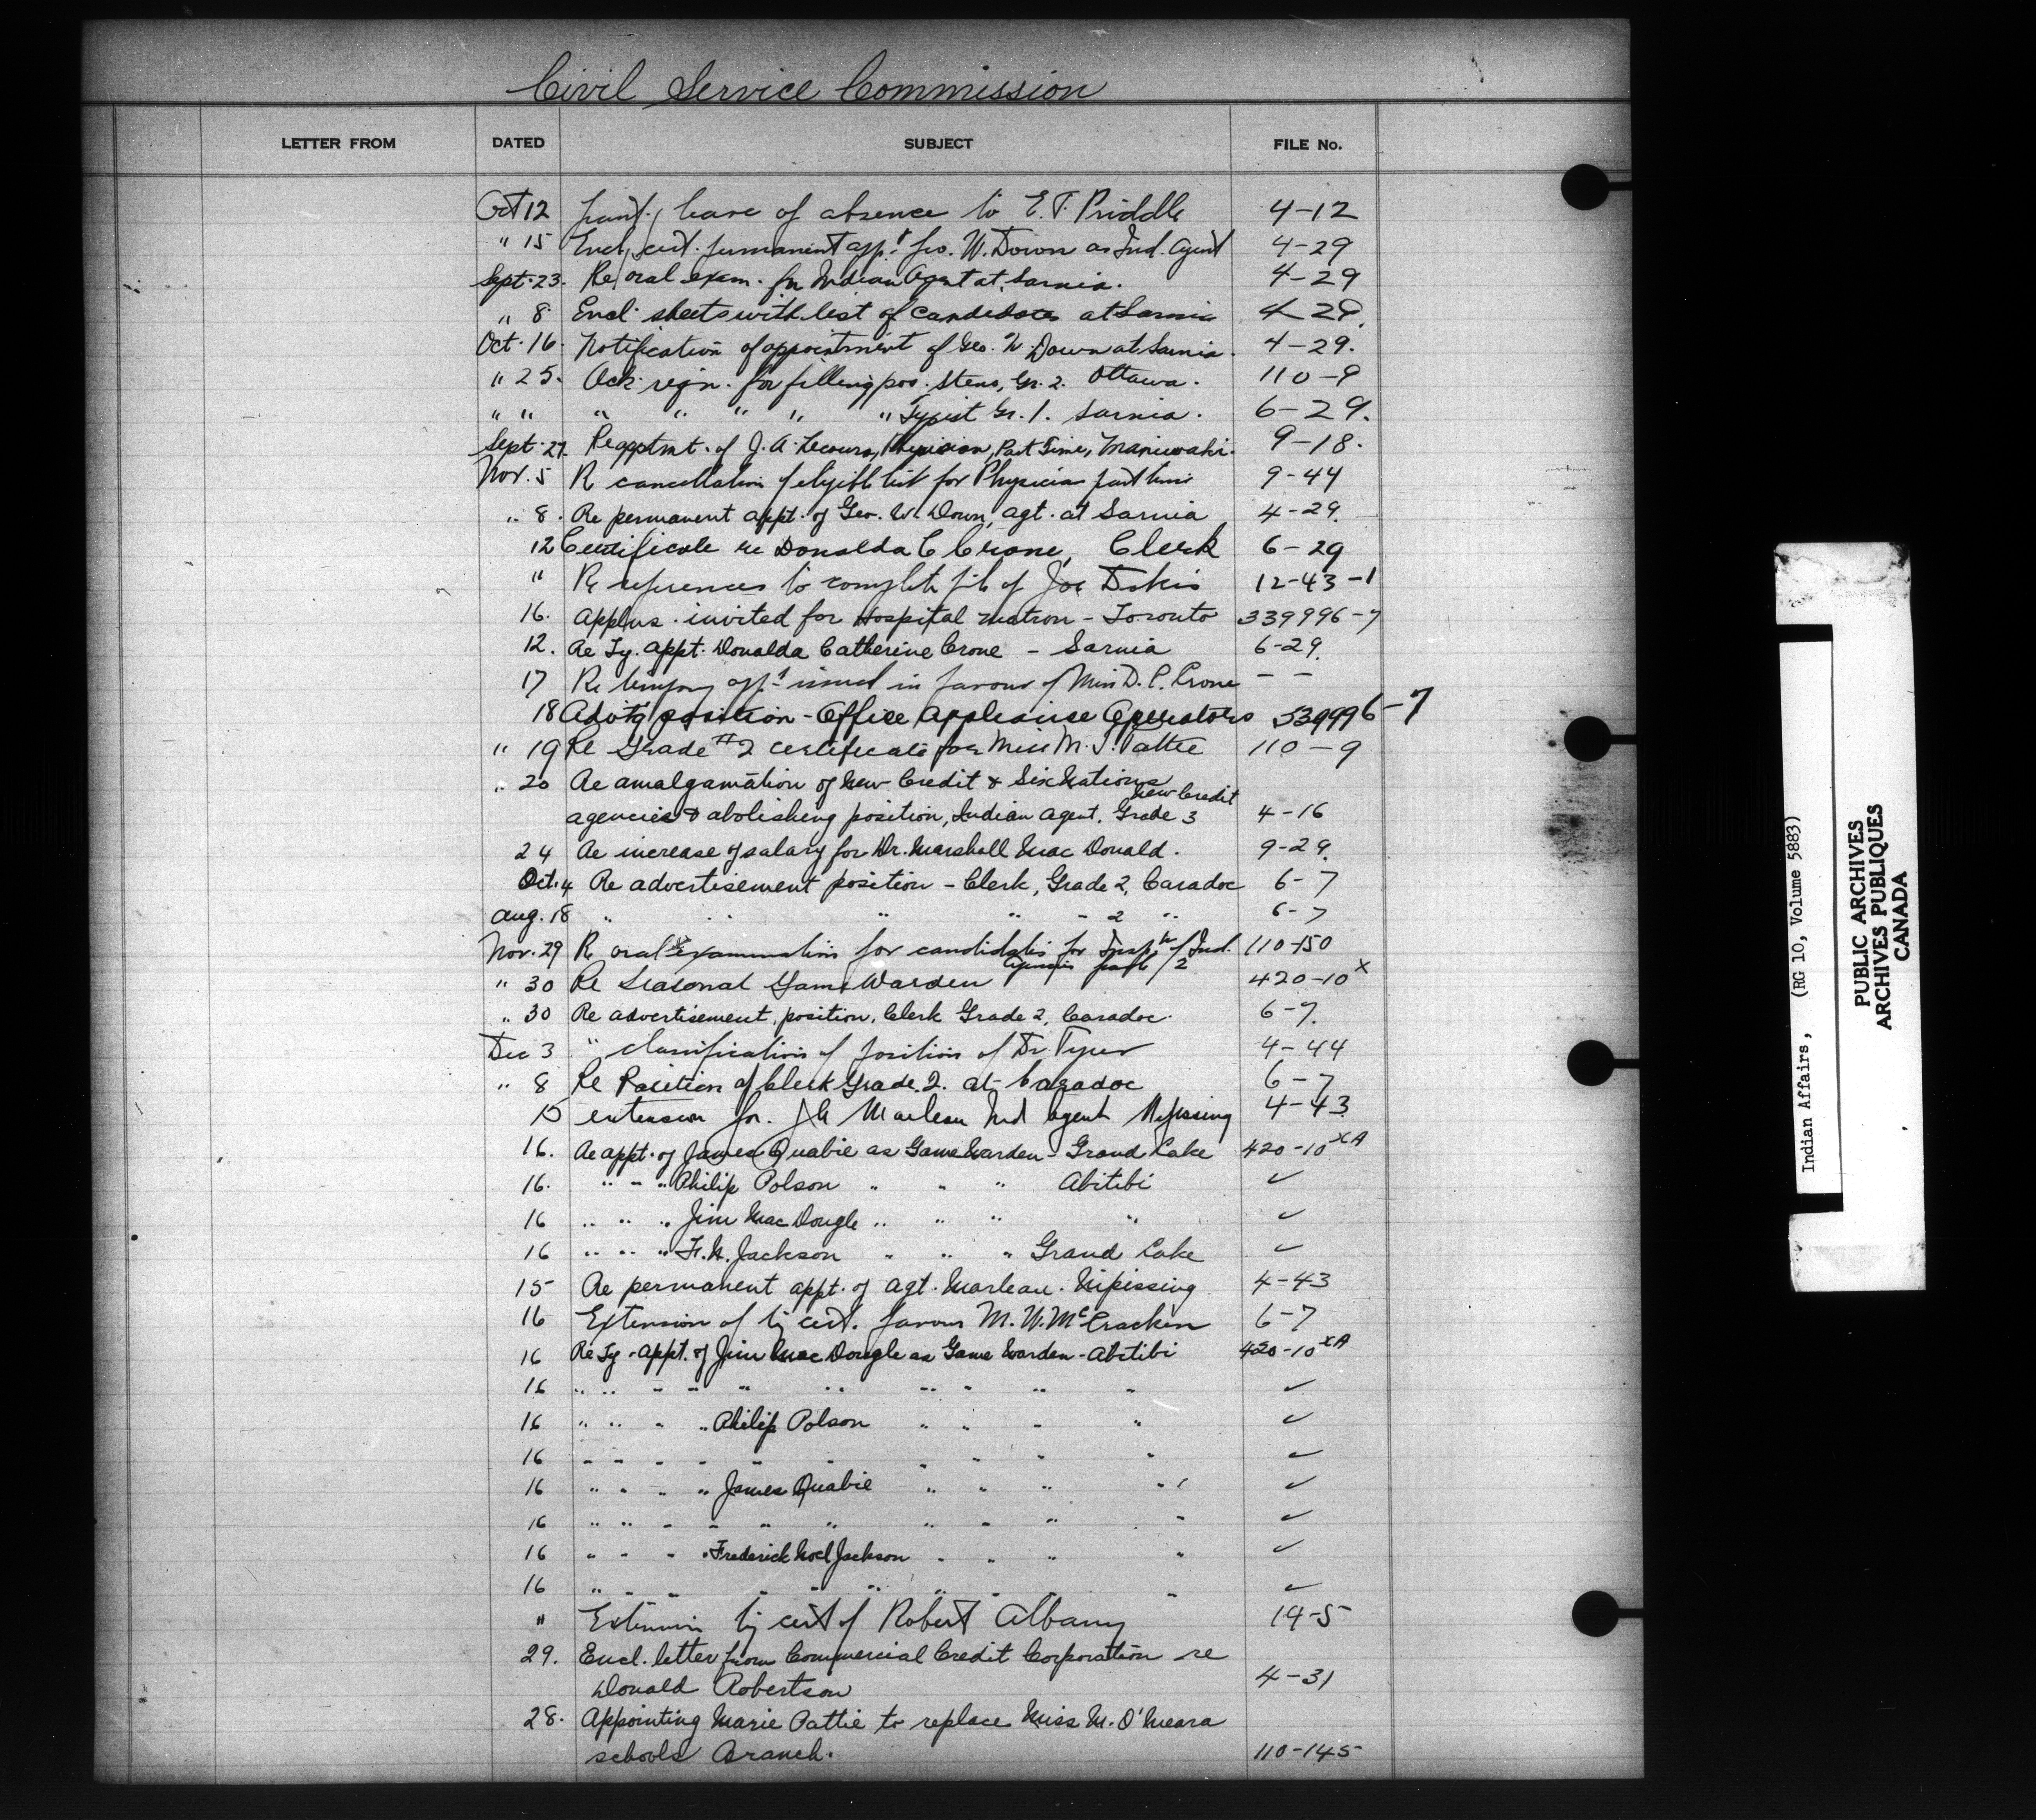 Civil Service Commission
LETTER FROM DATED SUBJECT FILE No.
Oct 12 leave of absence to E. T. Priddle 4-12
" 15 Encl. cert. permanent app't Geo. W. Down as Ind. Agent 4-29
Sept. 23. Re oral exam. for Indian Agent at Sarnia. 4-29
" 8 Encl. sheets with list of candidates at Sarnia 4 29
Oct. 16. Notification of appointment of Geo. W. Down at Sarnia. 4-29.
" 25. Ack. reqn. for filling pos. Steno, Gr. 2. Ottawa. 110-9
" " " " " " " Typist Gr. 1. Sarnia. 6-29.
Sept. 27. Re apptmt. of J. A. Lecours, Physician, Part Time, Maniwaki. 9-18.
Nov. 5 Re cancellation of eligible list for Physician part time 9-44
" 8. Re permanent appt. of Geo. W. Down, agt. at Sarnia 4-29.
12 Certificate re Donalda C Crone, Clerk 6-29
" Re references to complete file of Joe Dokis 12-43-1
16. Applns. invited for Hospital Matron - Toronto 339996-7
12. Re Ty. appt. Donalda Catherine Crone - Sarnia 6-29.
17 Re temporary app't issued in favour of Miss D. C. Crone - -
18 Advtg position - Office Appliance Operators 339996-7
" 19 Re Grade #2 certificate for Miss M. J. Pattie 110-9
" 20 Re amalgamation of New Credit & Six Nations
agencies & abolishing position, Indian Agent, Grade 3 New Credit 4-16
24 Re increase of salary for Dr. Marshall MacDonald. 9-29.
Oct. 4 Re advertisement position - Clerk, Grade 2, Caradoc 6-7
Aug. 18 " " " " - 2 " 6-7
Nov. 29 Re oral examination for candidates for Insp'r of Ind. 110-150
Agencies grade 2
" 30 Re Seasonal Game Warden 420-10 X
" 30 Re advertisement, position, Clerk Grade 2, Caradoc. 6-7.
Dec 3 " classification of position of Dr. Tyrer 4-44
" 8 Re Position of Clerk Grade 2. at Caradoc 6-7
15 extension for. J A Marleau Ind Agent Nipissing 4-43
16. Re appt. of James Quabie as Game Warden - Grand Lake 420-10 XA
16. " " " Philip Polson " " " Abitibi ✓
16 " " " Jim MacDougle " " " " ✓
16 " " " F. N. Jackson " " " Grand Lake ✓
15 Re permanent appt. of Agt. Marleau. Nipissing 4-43
16 Extension of ty cert. favour M. W. McCracken 6-7
16 Re Ty. Appt. of Jim MacDougle as Game Warden - Abitibi 420-10 XA
16 " " " " " " " " " " ✓
16 " " " " Philip Polson " " " " ✓
16 " " " " " " " " " " ✓
16 " " " " James Quabie " " " " ✓
16 " " " " " " " " " " ✓
16 " " " " Frederick Noel Jackson " " " " ✓
16 " " " " " " " " " " ✓
" Extension ty cert of Robert Albany 14-5
29. Encl. letter from Commercial Credit Corporation re
Donald Robertson 4-31
28. Appointing Marie Pattie to replace Miss M. O'Meara
schools Branch. 110-145
Indian Affairs, (RG 10, Volume 5883)
PUBLIC ARCHIVES
ARCHIVES PUBLIQUES
CANADA